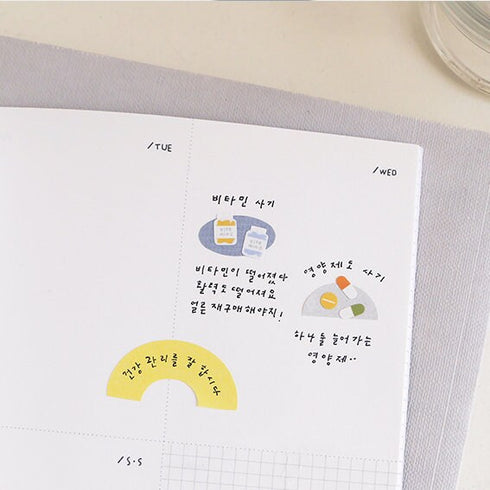 /TUE
/WED
비타민 사기
VITA
MINS
비타민이 떨어졌다
활력도 떨어져요
얼른 재구매해야지!
영양제도 사기
하나 둘 늘어가는
영양제..
건강 관리를 잘 합시다
/S.S